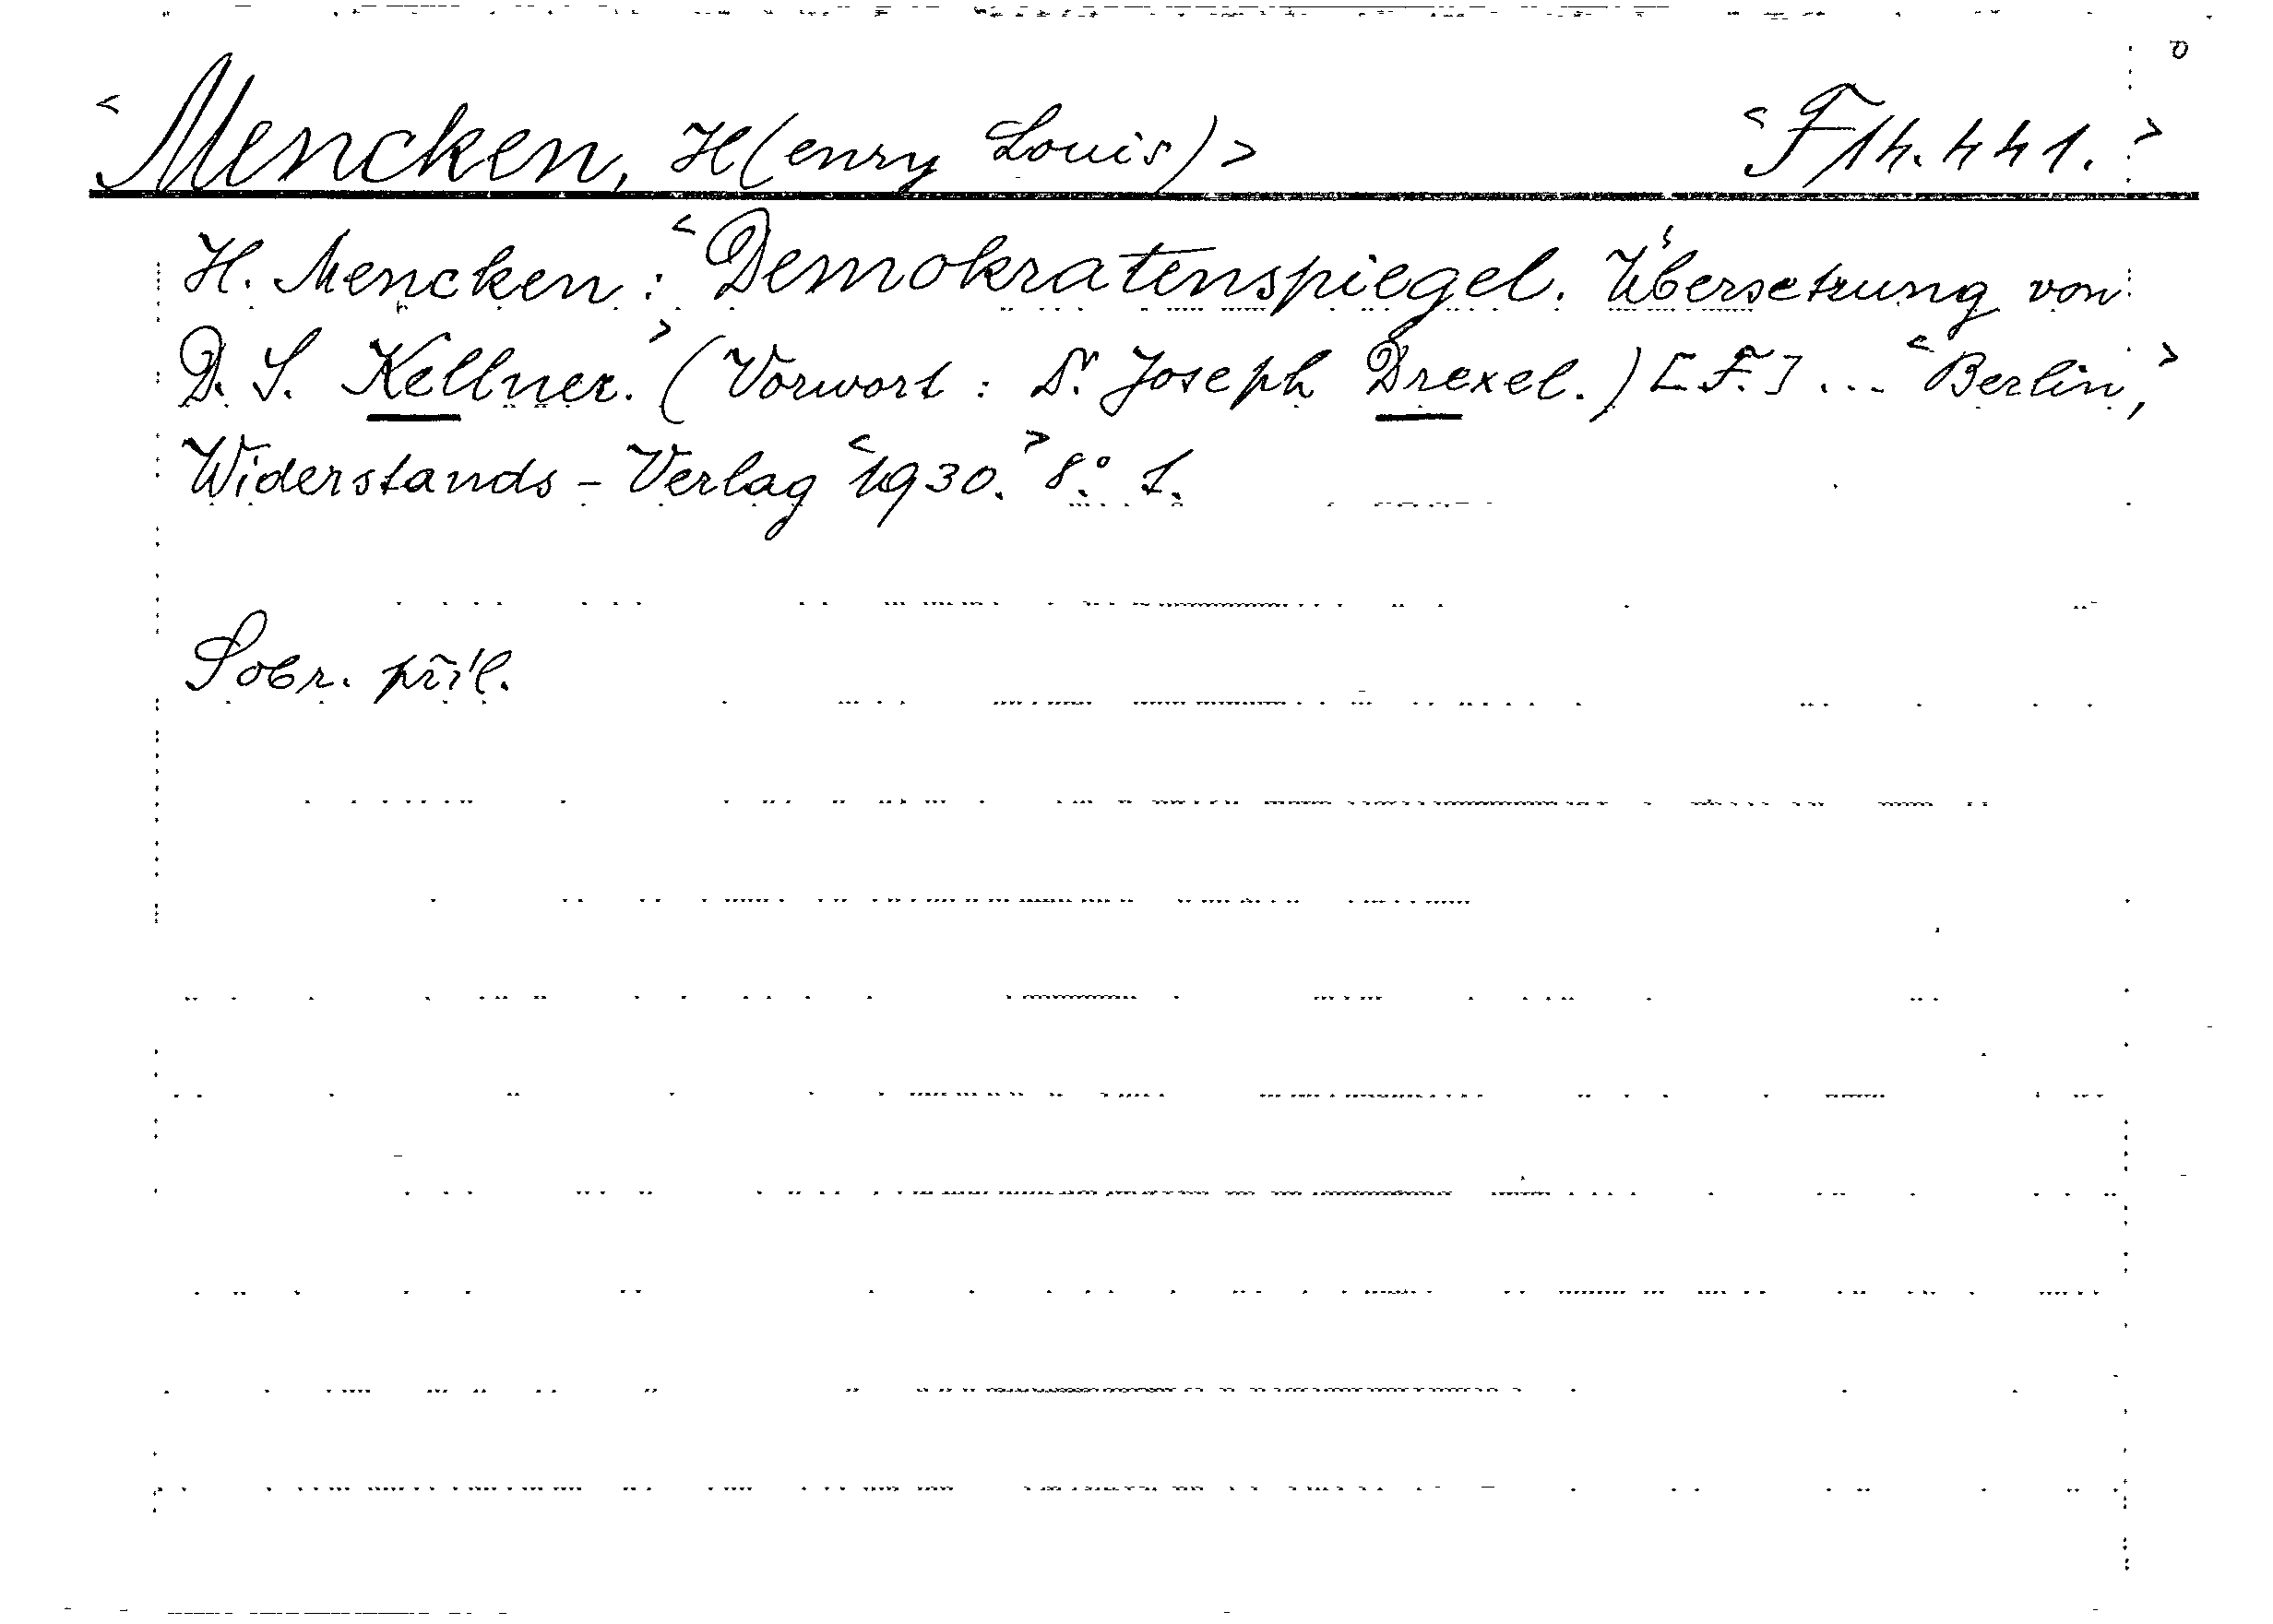 <Mencken, H(enry Louis)> <F 14.441.>
H. Mencken: <Demokratenspiegel. Übersetzung von
D. S. Kellner.> (Vorwort: Dr. Joseph Drexel.) [F.] ... <Berlin,>
Widerstands-Verlag <1930.> 8° 1.
Sobr. příl.